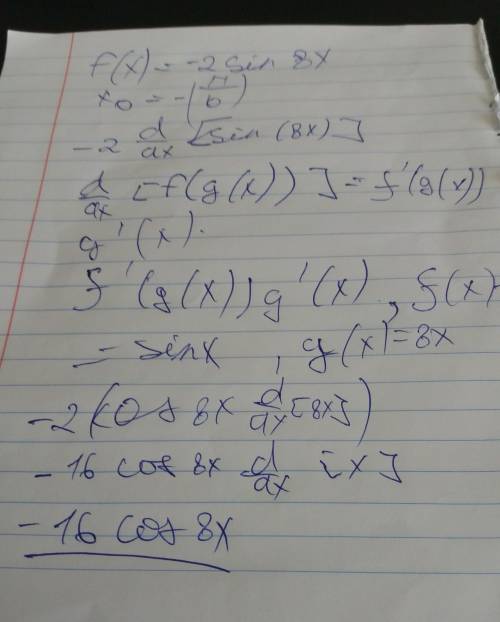 f(x) = -2 sin 8x
x₀ = -(π/6)
-2 d/dx [sin (8x)]
d/dx [f(g(x))] = f'(g(x))
g'(x).
f'(g(x)) g'(x), f(x)
= sinx, g(x) = 8x
-2(cos 8x d/dx [8x])
-16 cos 8x d/dx [x]
-16 cos 8x